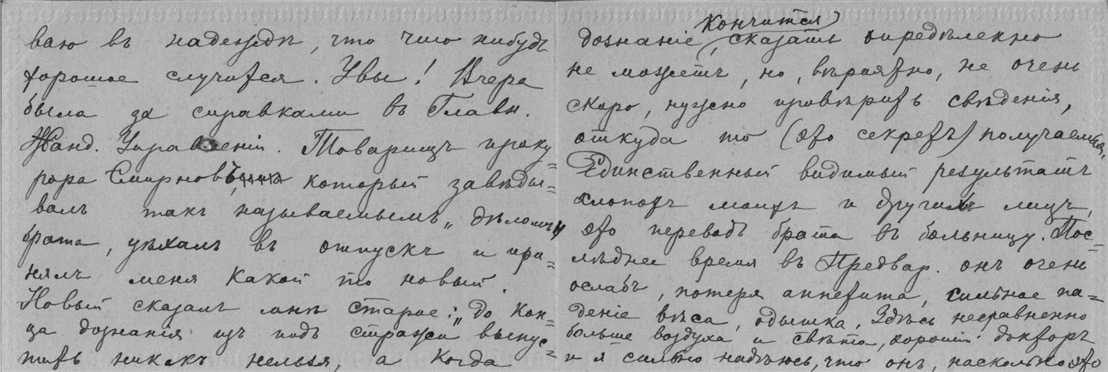 ваю въ надеждѣ, что что нибудь
хорошое случится. Увы! Вчера
была за справками въ Главн.
Жанд. Управленіи. Товарищъ проку-
рора Смирновъ, который завѣды-
валъ такъ называемымъ „дѣломъ“
брата, уѣхалъ въ отпускъ и при-
нялъ меня какой то новый.
Новый сказалъ мнѣ старое: „До кон-
ца дознанія изъ подъ стражи выпус-
тить никакъ нельзя, а когда
кончится
дознаніе, сказать опредѣленно
не можетъ, но, вѣроятно, не очень
скоро, нужно провѣрить свѣденія,
откуда то (это секретъ) получаемыя.
Единственный видимый результатъ
хлопотъ моихъ и другихъ лицъ,
это переводъ брата въ больницу. Пос-
лѣднее время въ Предвар. онъ очень
ослабъ, потеря аппетита, сильное па-
деніе вѣса, одышка. Здѣсь несравненно
больше воздуха и свѣта, хорошій докторъ
и я сильно надѣюсь, что онъ, насколько это